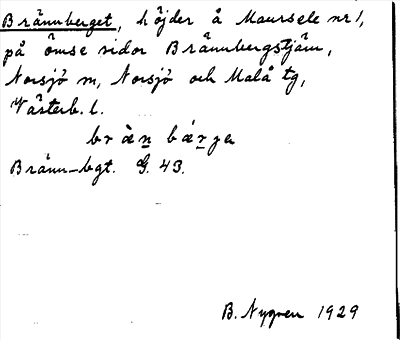 Brännberget, höjder å Maursele nr 1,
på ömse sidor Brännbergstjärn,
Norsjö sn, Norsjö och Malå tg,
Västerb. l.
brän bärje
Bränn-bgt. G. 43.
B. Nygren 1929